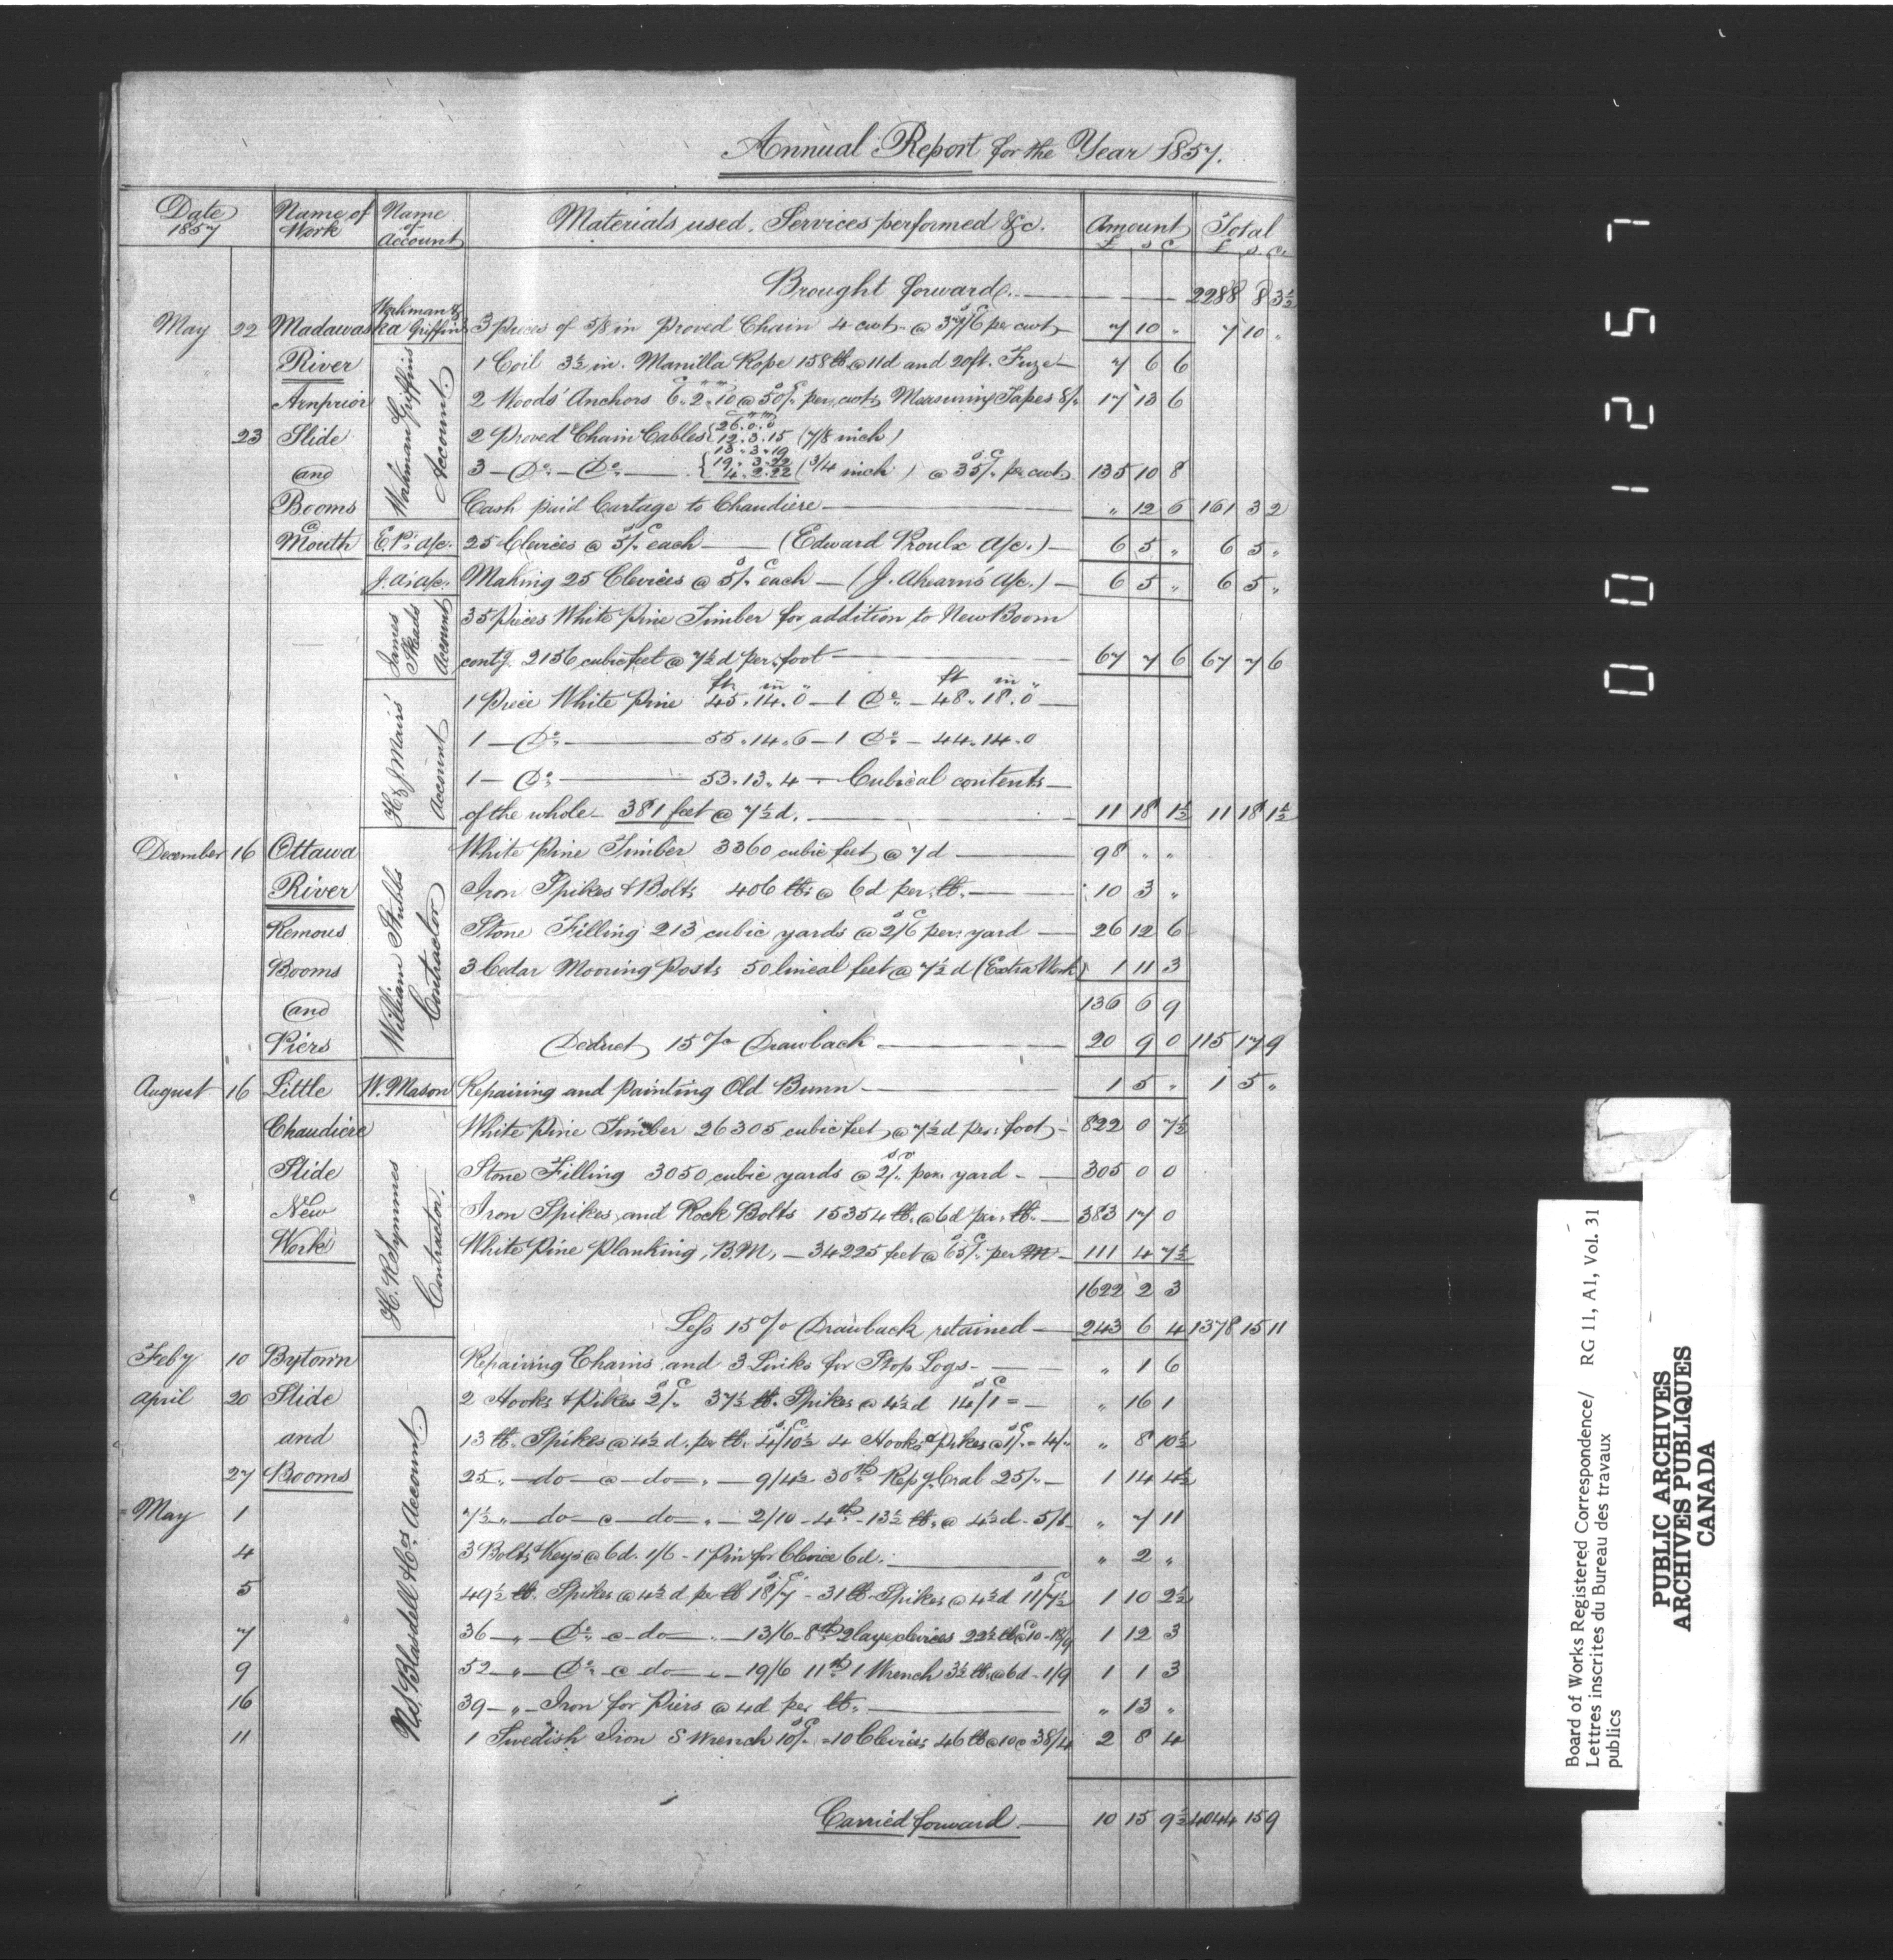 Annual Report for the Year 1857.
Date 1857 Name of Work Name of Account Materials used, Services performed &c. Amount £ s c Total £ s. c.
Brought forward. 2288 8 3½
May 22 Madawaska Workman & Griffin 3 pieces of 5/8 in Proved Chain 4 cwt @ 37/6 per cwt 7 10 " 7 10 "
River 1 Coil 3½ in. Manilla Rope 158 lb @ 11d and 20 ft. Fuze 7 6 6
Arnprior 2 Woods' Anchors 6. 2. 10 @ 50/. per cwt, Measuring Tapes 8/. 17 13 6
23 Slide 2 Proved Chain Cables { 26. 0. 0 12. 3. 15 (7/8 inch)
and 3 Do. Do. { 13. 3. 19 19. 3. 22 4. 2. 22 (3/4 inch) @ 35/. per cwt. 135 10 8
Booms Cash paid Cartage to Chaudiere " 12 6 161 3 2
Workman Griffins Account.
@ Mouth E.P's a/c. 25 Clevices @ 5/. each (Edward Proulx a/c.) 6 5 " 6 5 "
J. A's a/c. Making 25 Clevices @ 5/. each (J. Ahearn's a/c.) 6 5 " 6 5 "
James Skeads Account 35 Pieces White Pine Timber for addition to New Boom
contg. 2156 cubic feet @ 7½d per. foot 67 7 6 67 7 6
H & J Mairs' Account 1 Piece White Pine ft. in " 45. 14. 0 1 Do. ft in " 48. 18. 0
1 Do. 55. 14. 6 1 Do. 44. 14. 0
1 Do. 53. 13. 4 Cubical contents
of the whole 381 feet @ 7½d. 11 18 1½ 11 18 1½
December 16 Ottawa White Pine Timber 3360 cubic feet @ 7d 98 " "
River Iron Spikes & Bolts 406 lbs @ 6d per. lb. 10 3 "
Remous Stone Filling 213 cubic yards @ 2/6 per. yard 26 12 6
Booms 3 Cedar Mooring Posts 50 lineal feet @ 7½d (Extra Work) 1 11 3
and 136 6 9
Piers Deduct 15 % Drawback 20 9 0 115 17 9
William Stubbs Contractor
August 16 Little W. Mason Repairing and painting Old Bunn 1 5 " 1 5 "
Chaudiere White Pine Timber 26305 cubic feet @ 7½d per. foot 822 0 7½
Slide Stone Filling 3050 cubic yards @ 2/. per. yard 305 0 0
New Iron Spikes and Rock Bolts 15354 lb. @ 6d per. lb. 383 17 0
Work White Pine Planking, B.M, 34225 feet @ 65/. per M 111 4 7½
1622 2 3
Less 15 % Drawback retained 243 6 4 1378 15 11
H. R. Symmes Contractor.
Feby 10 Bytown Repairing Chains and 3 Links for Stop Logs " 1 6
April 20 Slide 2 Hooks & Pikes 2/. 37½ lb. Spikes @ 4½d 14/1 = " 16 1
and 13 lb. Spikes @ 4½d. per lb. 4/10½ 4 Hooks & pikes @ 1/. = 4/. " 8 10½
27 Booms 25 " do @ do " 9/4½ 30th Repg. Crab 25/. 1 14 4½
May 1 7½ " do @ do " 2/10 4th 13½ lb. @ 4½d 5/1 " 7 11
4 3 Bolts & Keys @ 6d. 1/6 1 Pin for Clevice 6d. " 2 "
5 49½ lb. Spikes @ 4½d per lb 18/7 31 lb Spikes @ 4½d 11/7½ 1 10 2½
7 36 " Do. @ do " 13/6 8th 2 large clevices 22½ lb @ 10 18/9 1 12 3
9 52 " Do. @ do " 19/6 11th 1 Wrench 3½ lb. @ 6d 1/9 1 1 3
16 39 " Iron for Piers @ 4d per lb. " 13 "
11 1 Swedish Iron S Wrench 10/. 10 Clevices 46 lb @ 10 @ 38/4 2 8 4
N. S. Blasdell & Co's Account.
Carried forward. 10 15 9½ 4044 15 9
001257
Board of Works Registered Correspondence/ RG 11, A1, Vol. 31
Lettres inscrites du Bureau des travaux
publics
PUBLIC ARCHIVES
ARCHIVES PUBLIQUES
CANADA